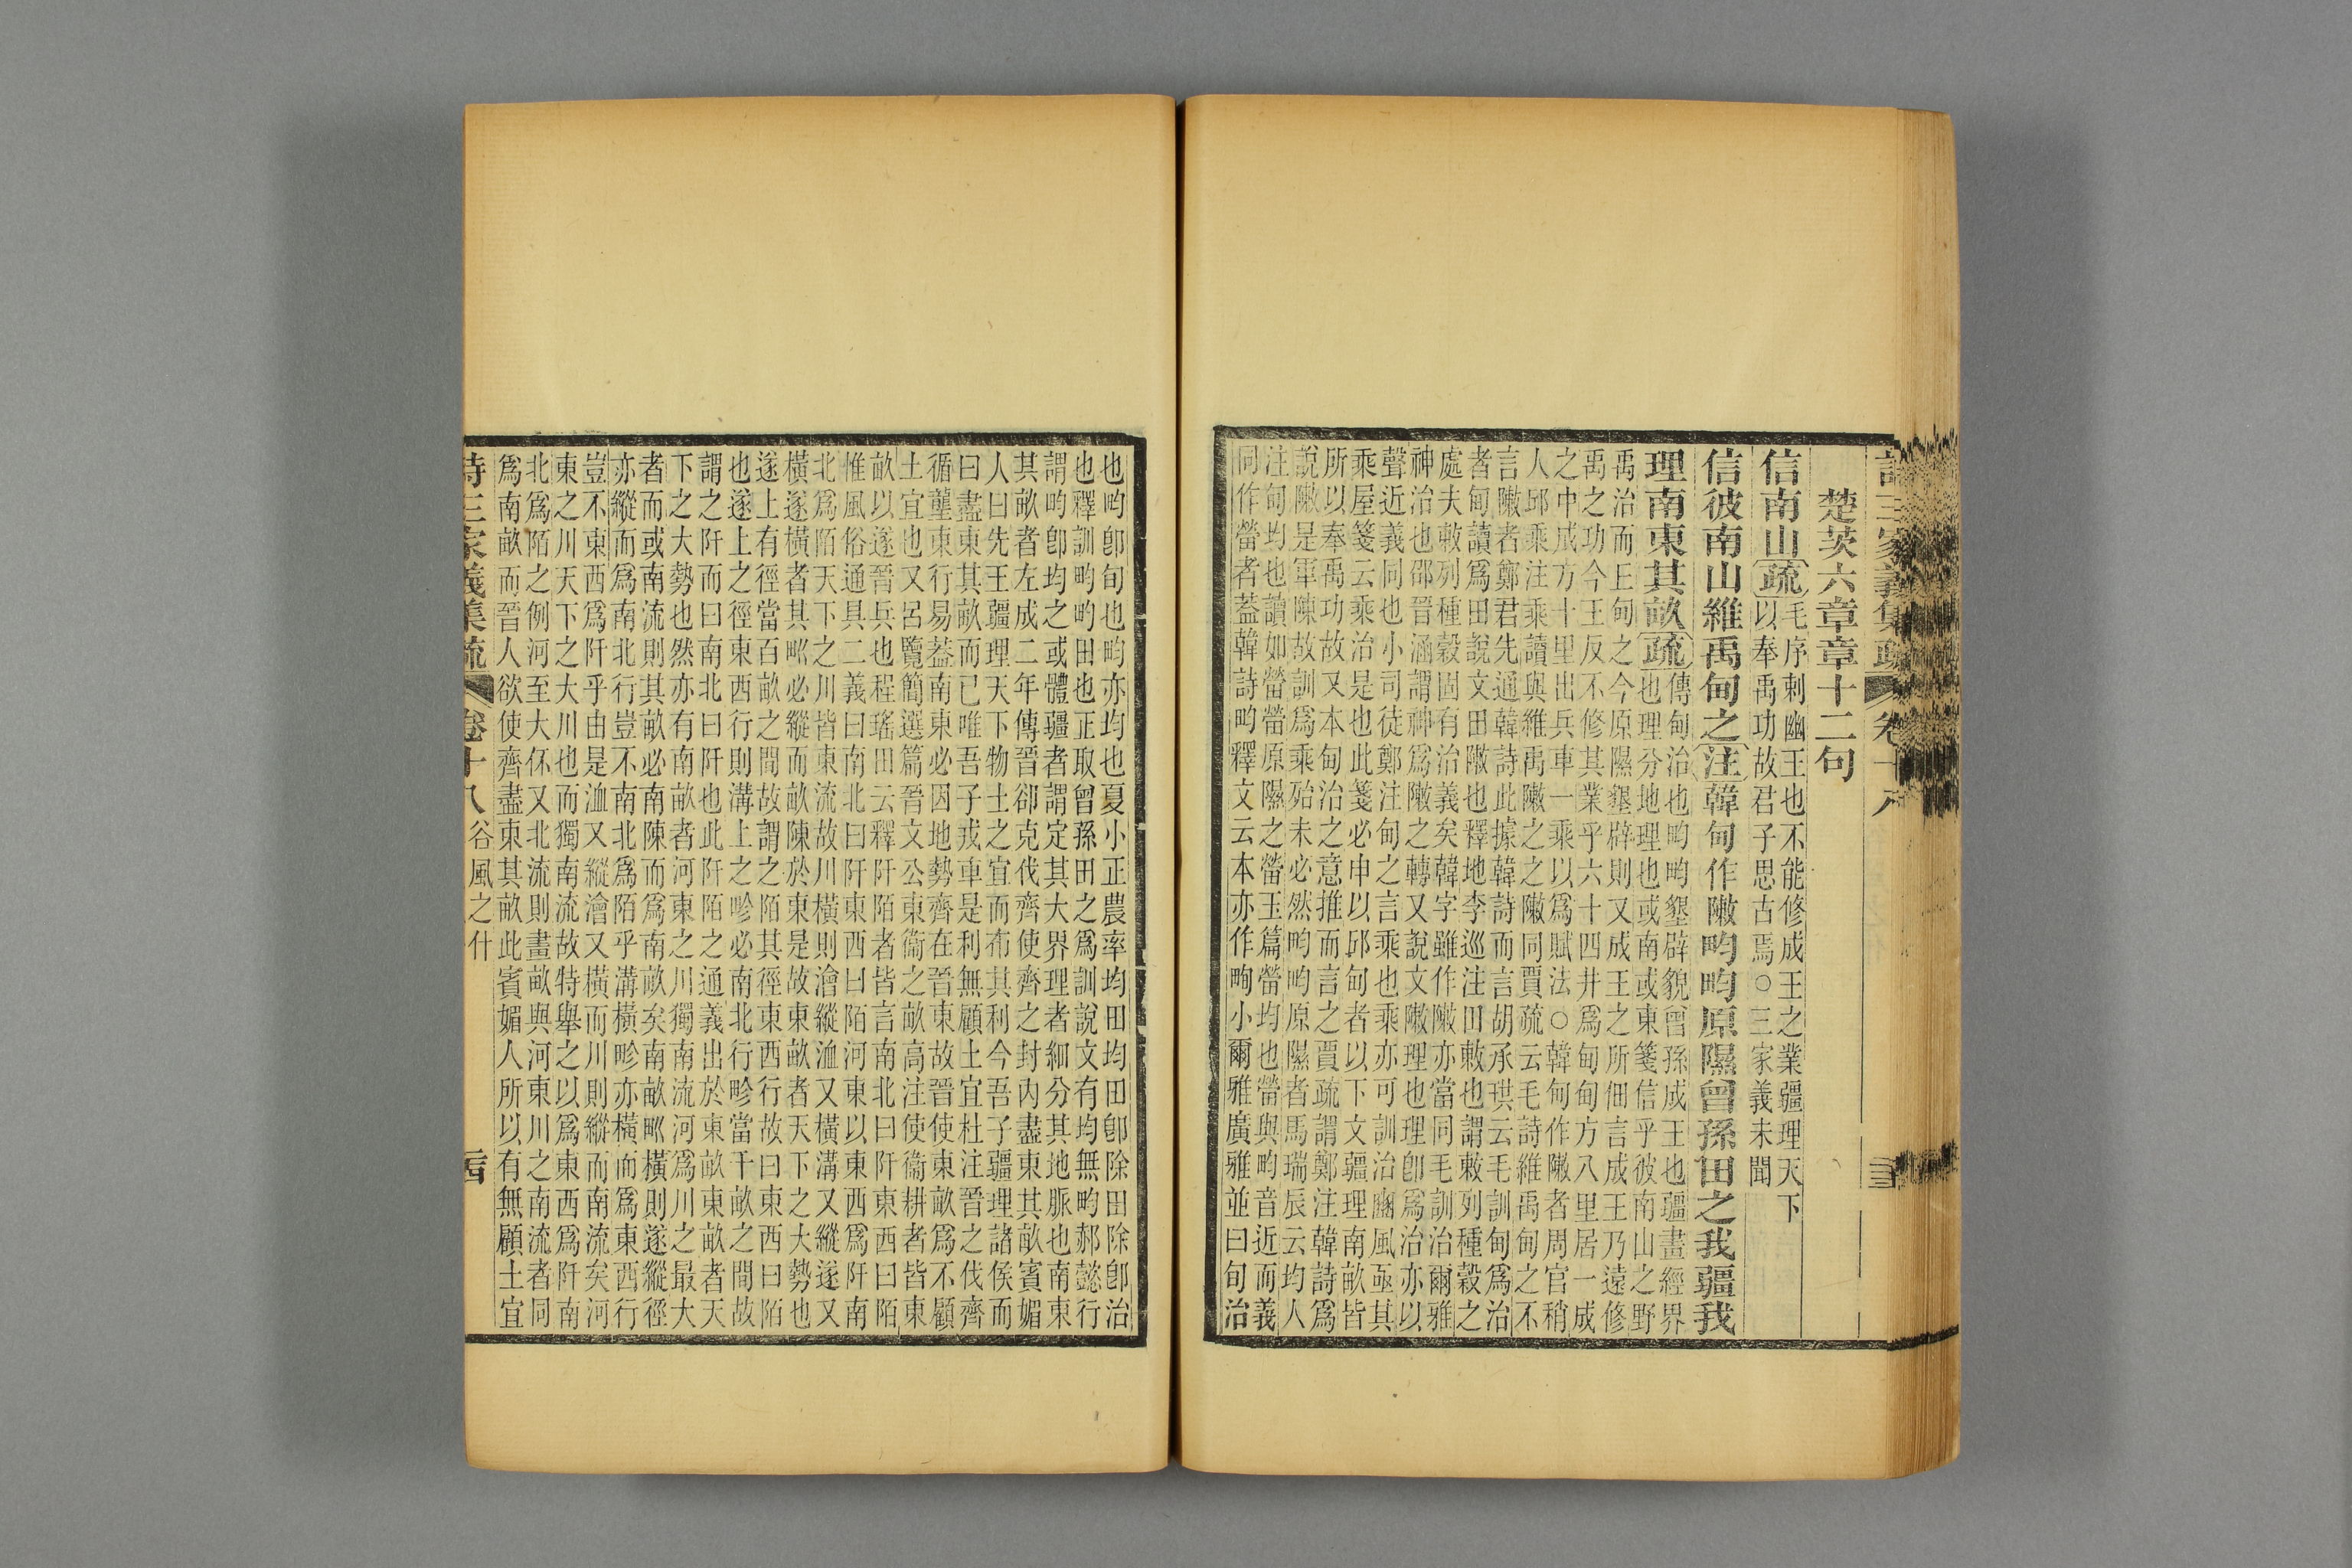 詩三家義集疏 卷十八
楚茨六章章十二句
信南山疏毛序刺幽王也不能修成王之業疆理天下
以奉禹功故君子思古焉○三家義未聞
信彼南山維禹甸之注韓甸作敶畇畇原隰曾孫田之我疆我
理南東其畝疏傳甸治也畇畇墾辟貌曾孫成王也疆畫經界
也理分地理也或南或東箋信乎彼南山之野
禹治而丘甸之今原隰墾辟則又成王之所佃言成王乃遠修
禹之功今王反不修其業乎六十四井爲甸甸方八里居一成
之中成方十里出兵車一乘以爲賦法○韓甸作敶者周官稍
人邱乘注乘讀與維禹敶之之敶同賈疏云毛詩維禹甸之不
言敶者鄭君先通韓詩此據韓詩而言胡承珙云毛訓甸爲治
者甸讀爲田說文田敶也釋地李巡注田敕也謂敕列種穀之
處夫敕列種穀固有治義矣韓字雖作敶亦當同毛訓治爾雅
神治也邵晉涵謂神爲敶之轉又說文敶理也理卽爲治亦以
聲近義同也小司徒鄭注甸之言乘也乘亦可訓治豳風亟其
乘屋箋云乘治是也此箋必申以邱甸者以下文疆理南畝皆
所以奉禹功故又本甸治之意推而言之賈疏謂鄭注韓詩爲
說敶是軍陳故訓爲乘殆未必然畇畇原隰者馬瑞辰云均人
注旬均也讀如㽦㽦原隰之㽦玉篇㽦均也㽦與畇音近而義
同作㽦者葢韓詩畇釋文云本亦作㽬小爾雅廣雅並曰旬治
也畇卽旬也畇亦均也夏小正農率均田均田卽除田除卽治
也釋訓畇畇田也正取曾孫田之爲訓說文有均無畇郝懿行
謂畇卽均之或體疆者謂定其大界理者細分其地脈也南東
其畝者左成二年傳晉卻克伐齊使齊之封內盡東其畝賓媚
人曰先王疆理天下物土之宜而布其利今吾子疆理諸侯而
曰盡東其畝而已唯吾子戎車是利無顧土宜杜注晉之伐齊
循壟東行易葢南東必因地勢齊在晉東故晉使東畝爲不顧
土宜也又呂覽簡選篇晉文公東衞之畝高注使衞耕者皆東
畝以遂晉兵也程瑤田云釋阡陌者皆言南北曰阡東西曰陌
惟風俗通具二義曰南北曰阡東西曰陌河東以東西爲阡南
北爲陌天下之川皆東流故川橫則澮縱洫又橫溝又縱遂又
橫遂橫者其甽必縱而畝陳於東是故東畝者天下之大勢也
遂上有徑當百畝之間故謂之陌其徑東西行故曰東西曰陌
也遂上之徑東西行則溝上之畛必南北行畛當千畝之間故
謂之阡而曰南北曰阡也此阡陌之通義出於東畝東畝者天
下之大勢也然亦有南畝者河東之川獨南流河爲川之最大
者而或南流則其畝必南陳而爲南畝矣南畝甽橫則遂縱徑
亦縱而爲南北行豈不南北爲陌乎溝橫畛亦橫而爲東西行
豈不東西爲阡乎由是洫又縱澮又橫而川則縱而南流矣河
東之川天下之大川也而獨南流故特舉之以爲東西爲阡南
北爲陌之例河至大伾又北流則畫畝與河東川之南流者同
爲南畝而晉人欲使齊盡東其畝此賓媚人所以有無顧土宜
詩三家義集疏 卷十八谷風之什